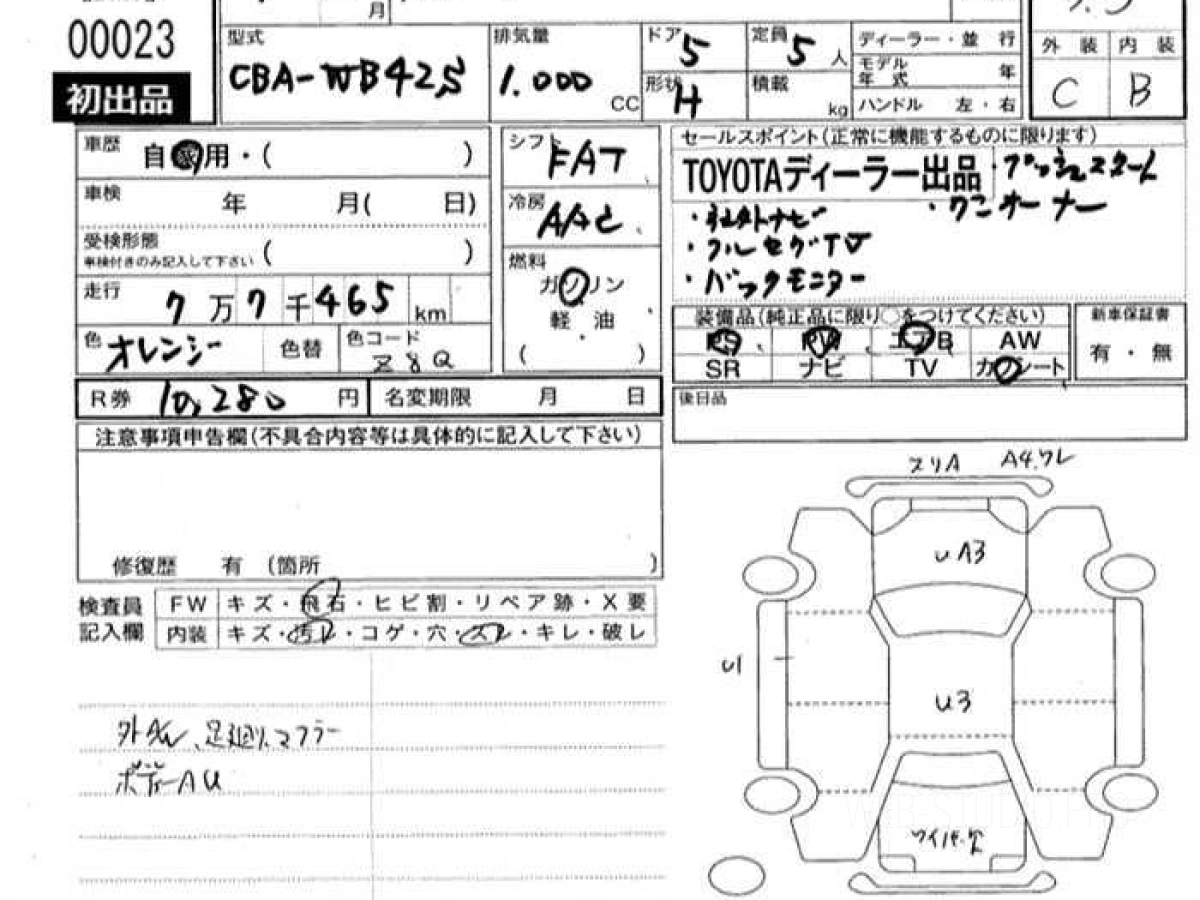 00023
初出品
月
型式
CBA-WB42S
排気量
1.000
CC
ドア
5
形状
H
定員
5 人
積載
kg
ディーラー・並 行
モデル
年 式
年
ハンドル 左・右
外 装
内 装
C
B
車歴
自家用・( )
車検
年 月( 日)
受検形態
車検付きのみ記入して下さい
( )
走行
7 万 7 千 465 km
色
オレンジ
色替
色コード
Z8Q
シフト
FAT
冷房
AAC
燃料
ガソリン
軽 油
( )
セールスポイント(正常に機能するものに限ります)
TOYOTAディーラー出品
・プッシュスタート
・社外ナビ
・ワンオーナー
・フルセグTV
・バックモニター
装備品(純正品に限り○をつけてください)
PS
PW
エアB
AW
SR
ナビ
TV
カワシート
新車保証書
有 ・ 無
R券
10,280 円
名変期限 月 日
後日品
注意事項申告欄(不具合内容等は具体的に記入して下さい)
修復歴 有 (箇所 )
検査員
記入欄
FW
キズ・飛石・ヒビ割・リペア跡・X要
内装
キズ・汚レ・コゲ・穴・スレ・キレ・破レ
足廻り、マフラー
ボデーAU
スリA
A4.ワレ
UA3
U1
U3
ワイパー欠